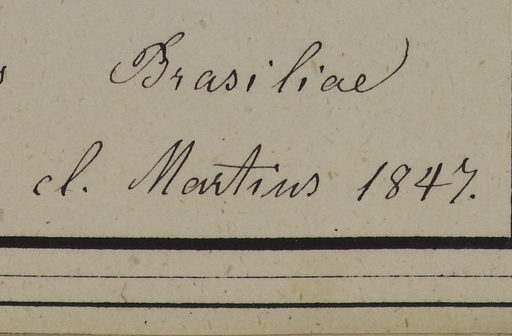 Brasiliae
cl. Martius 1847.